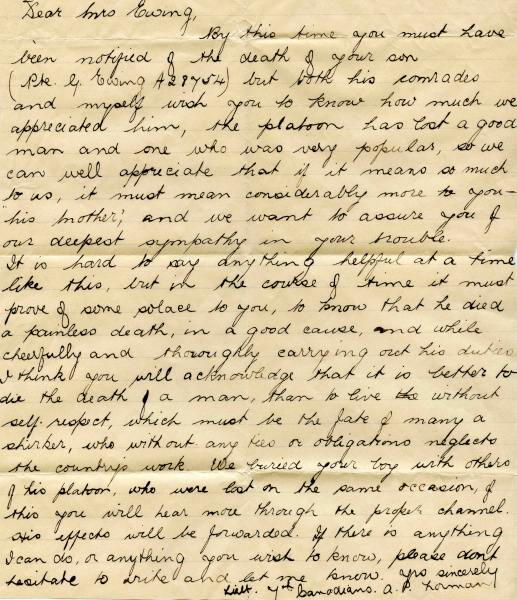 Dear Mrs Ewing,
By this time you must have
been notified of the death of your son
(Pte. G. Ewing A28754) but both his comrades
and myself wish you to know how much we
appreciated him, the platoon has lost a good
man and one who was very popular, so we
can well appreciate that if it means so much
to us, it must mean considerably more to you —
his mother; and we want to assure you of
our deepest sympathy in your trouble.
It is hard to say anything helpful at a time
like this, but in the course of time it must
prove of some solace to you, to know that he died
a painless death, in a good cause, and while
cheerfully and thoroughly carrying out his duties
I think you will acknowledge that it is better to
die the death of a man, than to live the without
self-respect, which must be the fate of many a
shirker, who without any ties or obligations neglects
the country's work. We buried your boy with others
of his platoon, who were lost on the same occasion, of
this you will hear more through the proper channel.
His effects will be forwarded. If there is anything
I can do, or anything you wish to know, please don't
hesitate to write and let me know. Yrs sincerely
Lieut. 7th Canadians. A. P.